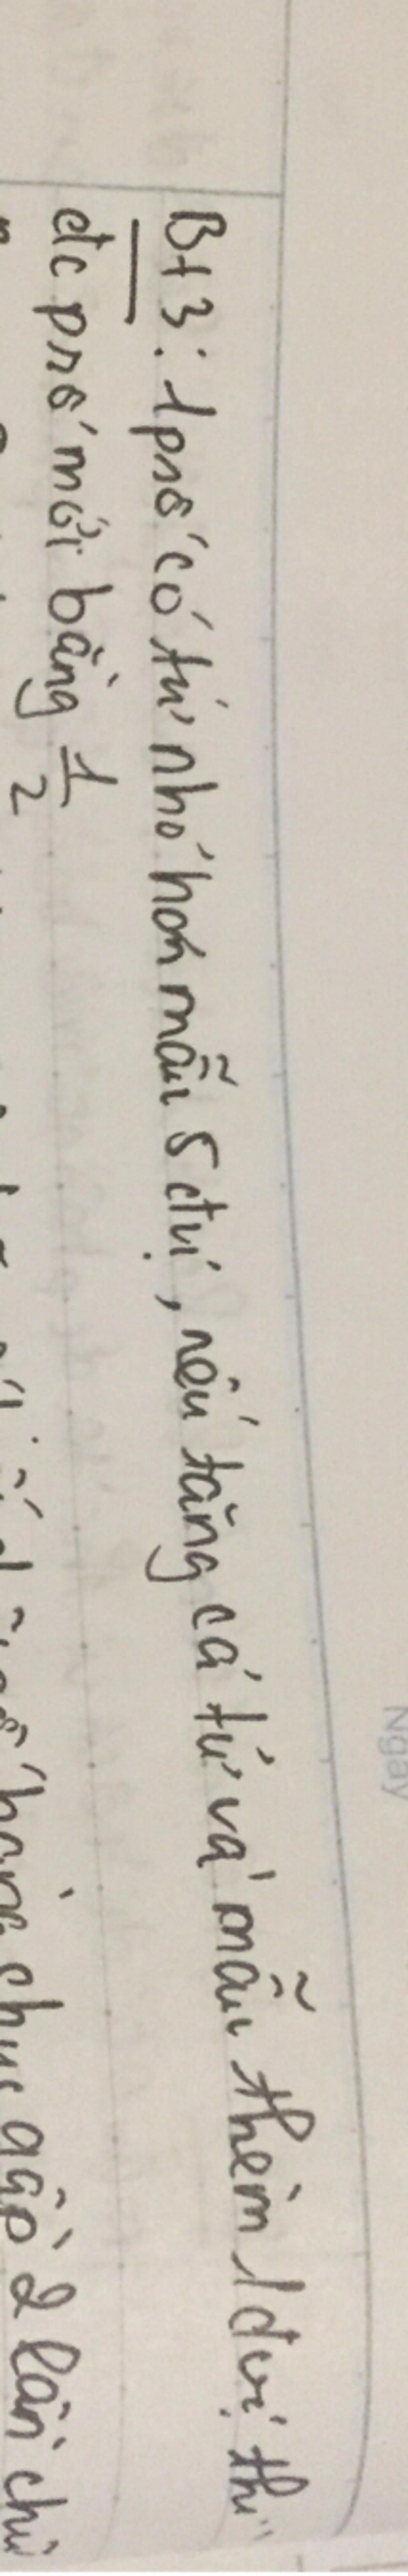 Ngày
Bt3: 1 psố có tử nhỏ hơn mẫu 5 đvị, nếu tăng cả tử và mẫu thêm 1 đvị thì
đc psố mới bằng 1/2
hàng chục gấp 2 lần chữ